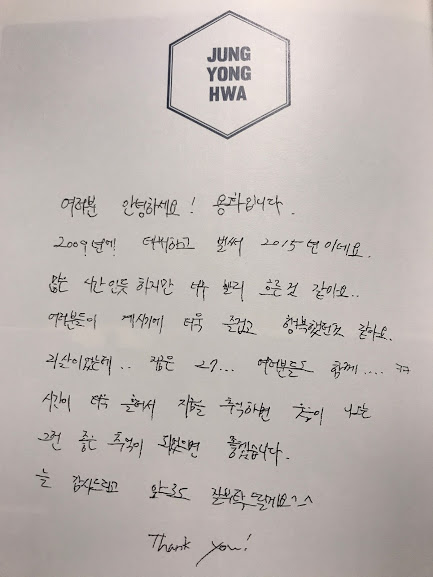 JUNG
YONG
HWA
여러분 안녕하세요! 용화입니다.
2009년에! 데뷔하고 벌써 2015년이네요.
많은 시간인듯 하지만 너무 빨리 흐른것 같아요..
여러분들이 계시기에 더욱 즐겁고 행복했던것 같아요.
21살이었는데.. 지금은 27... 여러분들도 함께.... ㅋㅋ
시간이 더욱 흘러서 지금을 추억하면 웃음이 나는
그런 좋은 추억이 되었으면 좋겠습니다.
늘 감사드리고 앞으로도 잘부탁드릴게요^^
Thank you!